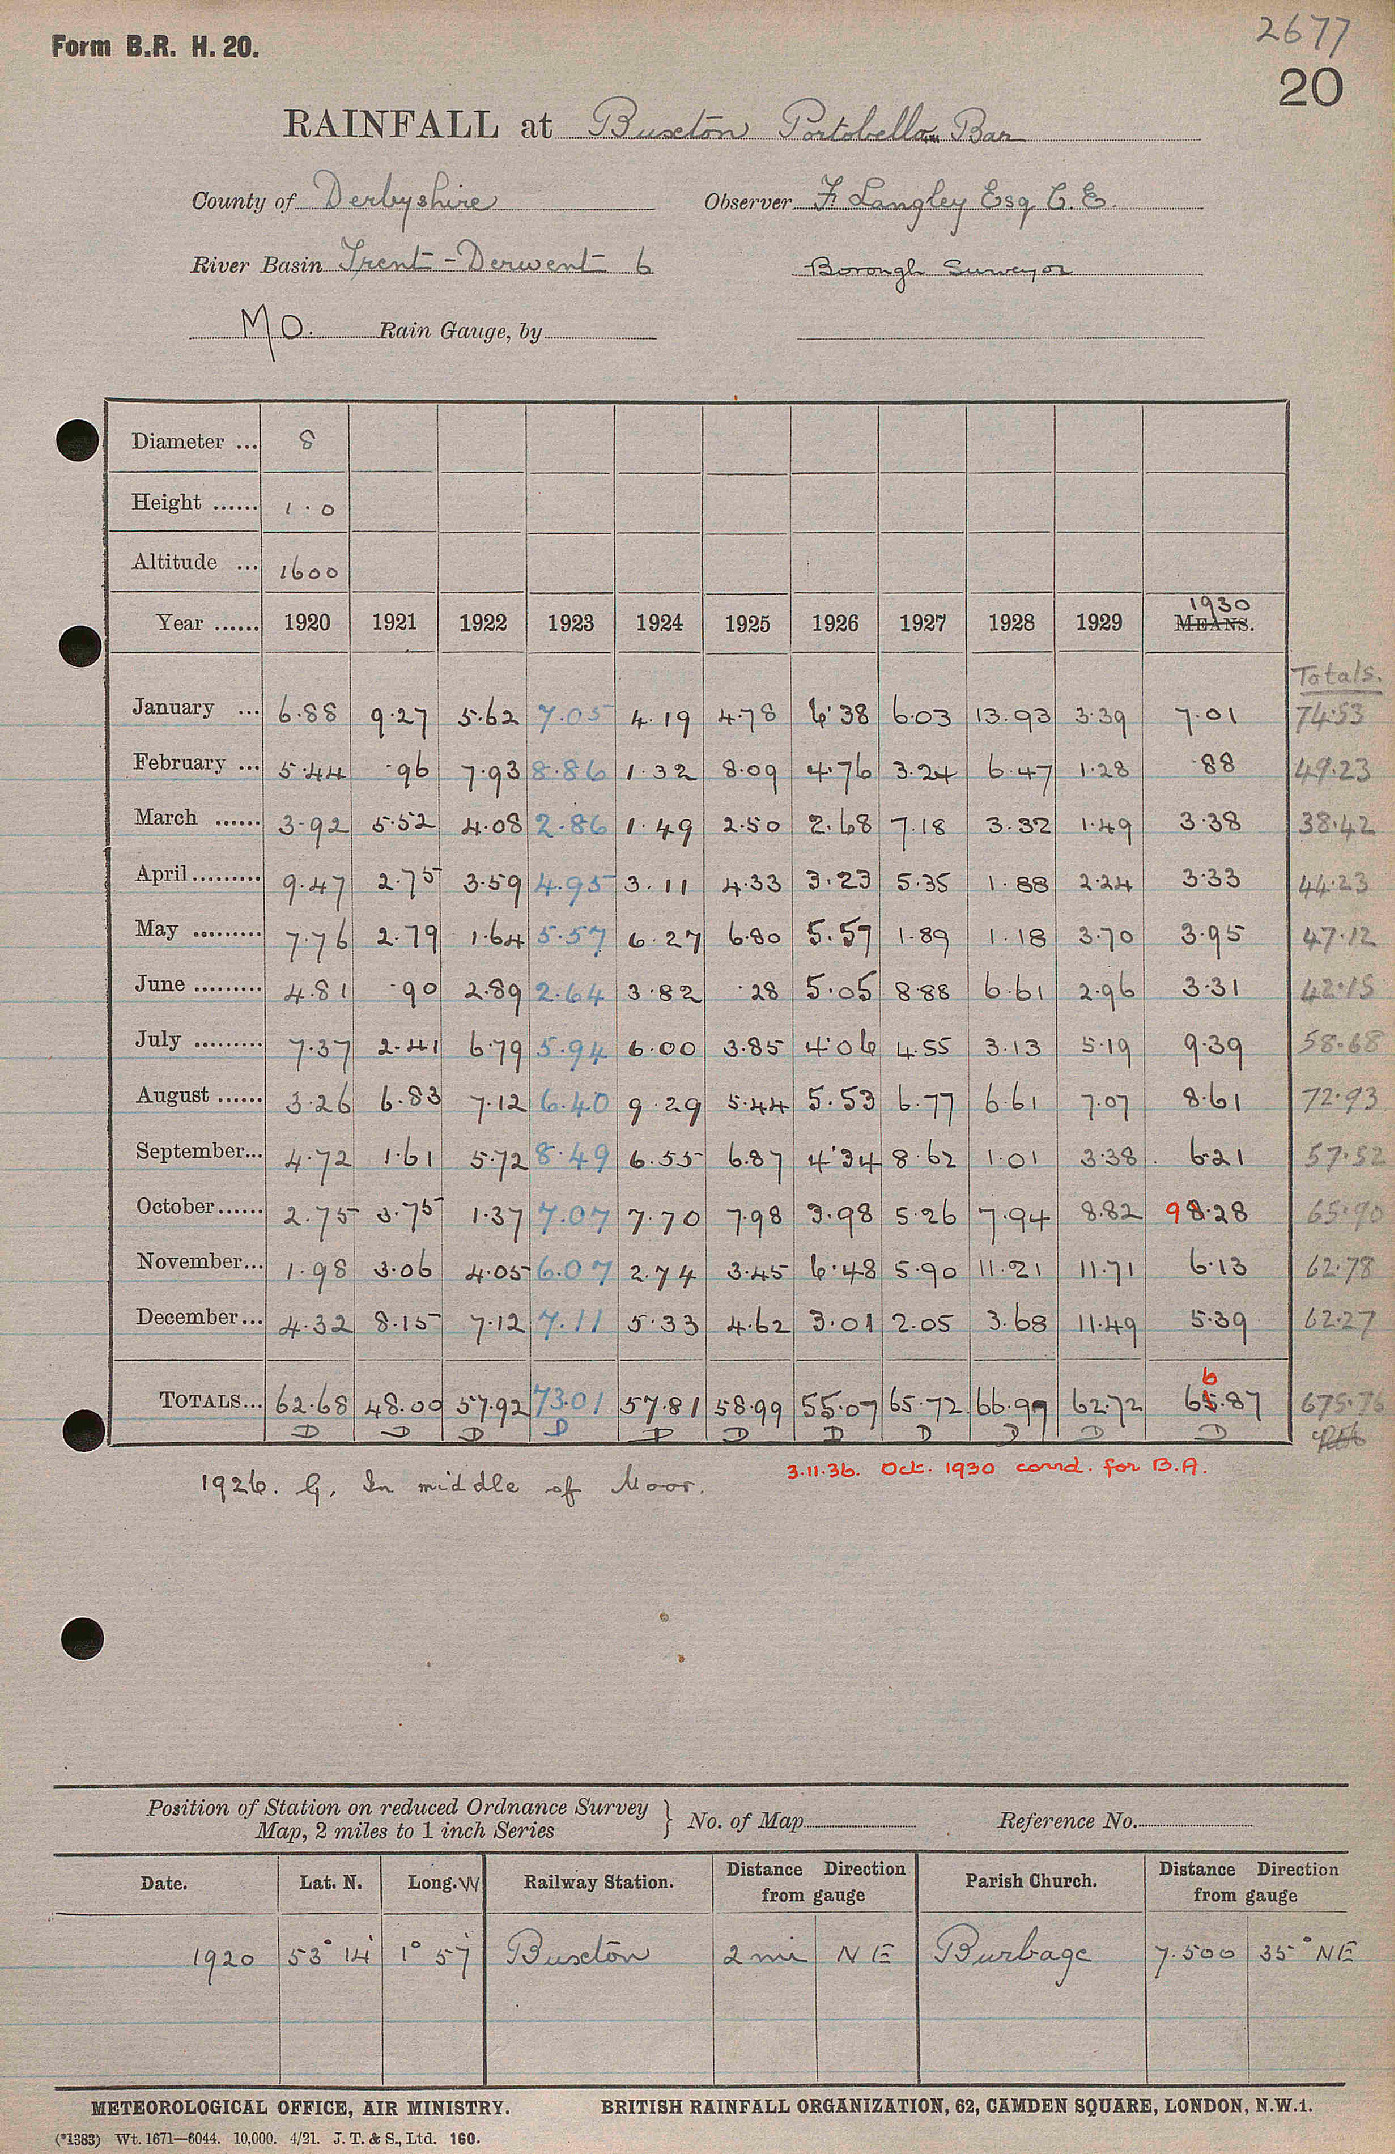 2677
Form B.R. H. 20.
20
RAINFALL at Buxton Portobello Bar
County of Derbyshire Observer F. Langley Esq C.E.
River Basin Trent - Derwent 6 Borough Surveyor
MO. Rain Gauge, by
Diameter ... 8
Height ...... 1.0
Altitude ... 1600
Year ...... 1920 1921 1922 1923 1924 1925 1926 1927 1928 1929 1930 MEANS.
Totals.
January ... 6.88 9.27 5.62 7.05 4.19 4.78 6.38 6.03 13.93 3.39 7.01 74.53
February ... 5.44 .96 7.93 8.86 1.32 8.09 4.76 3.24 6.47 1.28 .88 49.23
March ...... 3.92 5.52 4.08 2.86 1.49 2.50 2.68 7.18 3.32 1.49 3.38 38.42
April ......... 9.47 2.75 3.59 4.95 3.11 4.33 3.23 5.35 1.88 2.24 3.33 44.23
May ......... 7.76 2.79 1.64 5.57 6.27 6.80 5.57 1.89 1.18 3.70 3.95 47.12
June ......... 4.81 .90 2.89 2.64 3.82 .28 5.05 8.88 6.61 2.96 3.31 42.15
July ......... 7.37 2.41 6.79 5.94 6.00 3.85 4.06 4.55 3.13 5.19 9.39 58.68
August ...... 3.26 6.83 7.12 6.40 9.29 5.44 5.53 6.77 6.61 7.07 8.61 72.93
September... 4.72 1.61 5.72 8.49 6.55 6.87 4.34 8.62 1.01 3.38 6.21 57.52
October...... 2.75 3.75 1.37 7.07 7.70 7.98 3.98 5.26 7.94 8.82 9 8.28 65.90
November... 1.98 3.06 4.05 6.07 2.74 3.45 6.48 5.90 11.21 11.71 6.13 62.78
December... 4.32 8.15 7.12 7.11 5.33 4.62 3.01 2.05 3.68 11.49 5.39 62.27
6
TOTALS... 62.68 48.00 57.92 73.01 57.81 58.99 55.07 65.72 66.97 62.72 65.87 675.76
D D D D D D D D D D D
3.11.36. Oct. 1930 corrd. for B.A.
1926. G. In middle of Moor.
Position of Station on reduced Ordnance Survey
Map, 2 miles to 1 inch Series } No. of Map Reference No.
Date. Lat. N. Long. W Railway Station. Distance Direction from gauge Parish Church. Distance Direction from gauge
1920 53° 14' 1° 57' Buxton 2 mi NE Burbage 7.500 35° NE
METEOROLOGICAL OFFICE, AIR MINISTRY. BRITISH RAINFALL ORGANIZATION, 62, CAMDEN SQUARE, LONDON, N.W.1.
(*1383) Wt. 1671—6044. 10,000. 4/21. J. T. & S., Ltd. 160.